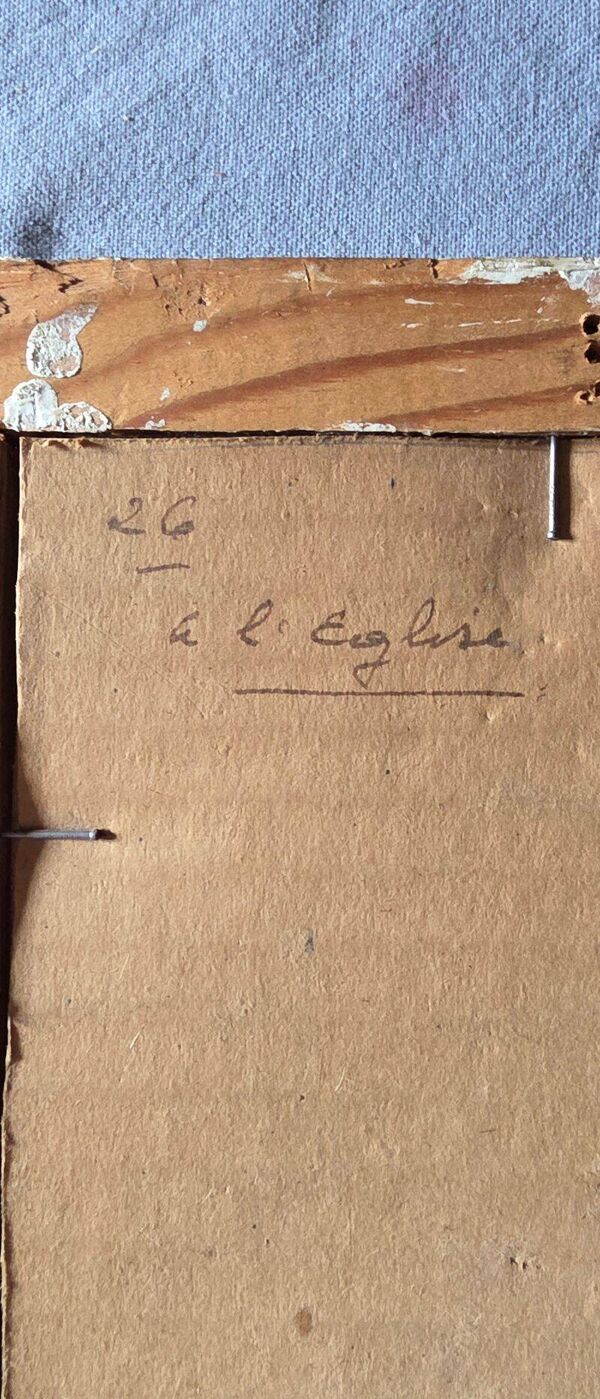 26
a l'Eglise